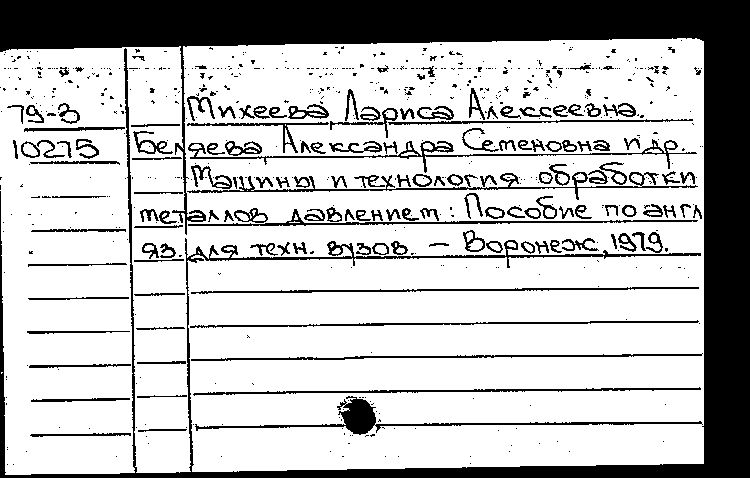 79-3 Михеева, Лариса Алексеевна.
10275 Беляева, Александра Семеновна и др.
Машины и технология обработки
металлов давлением: Пособие по англ
яз. для техн. вузов. — Воронеж, 1979.